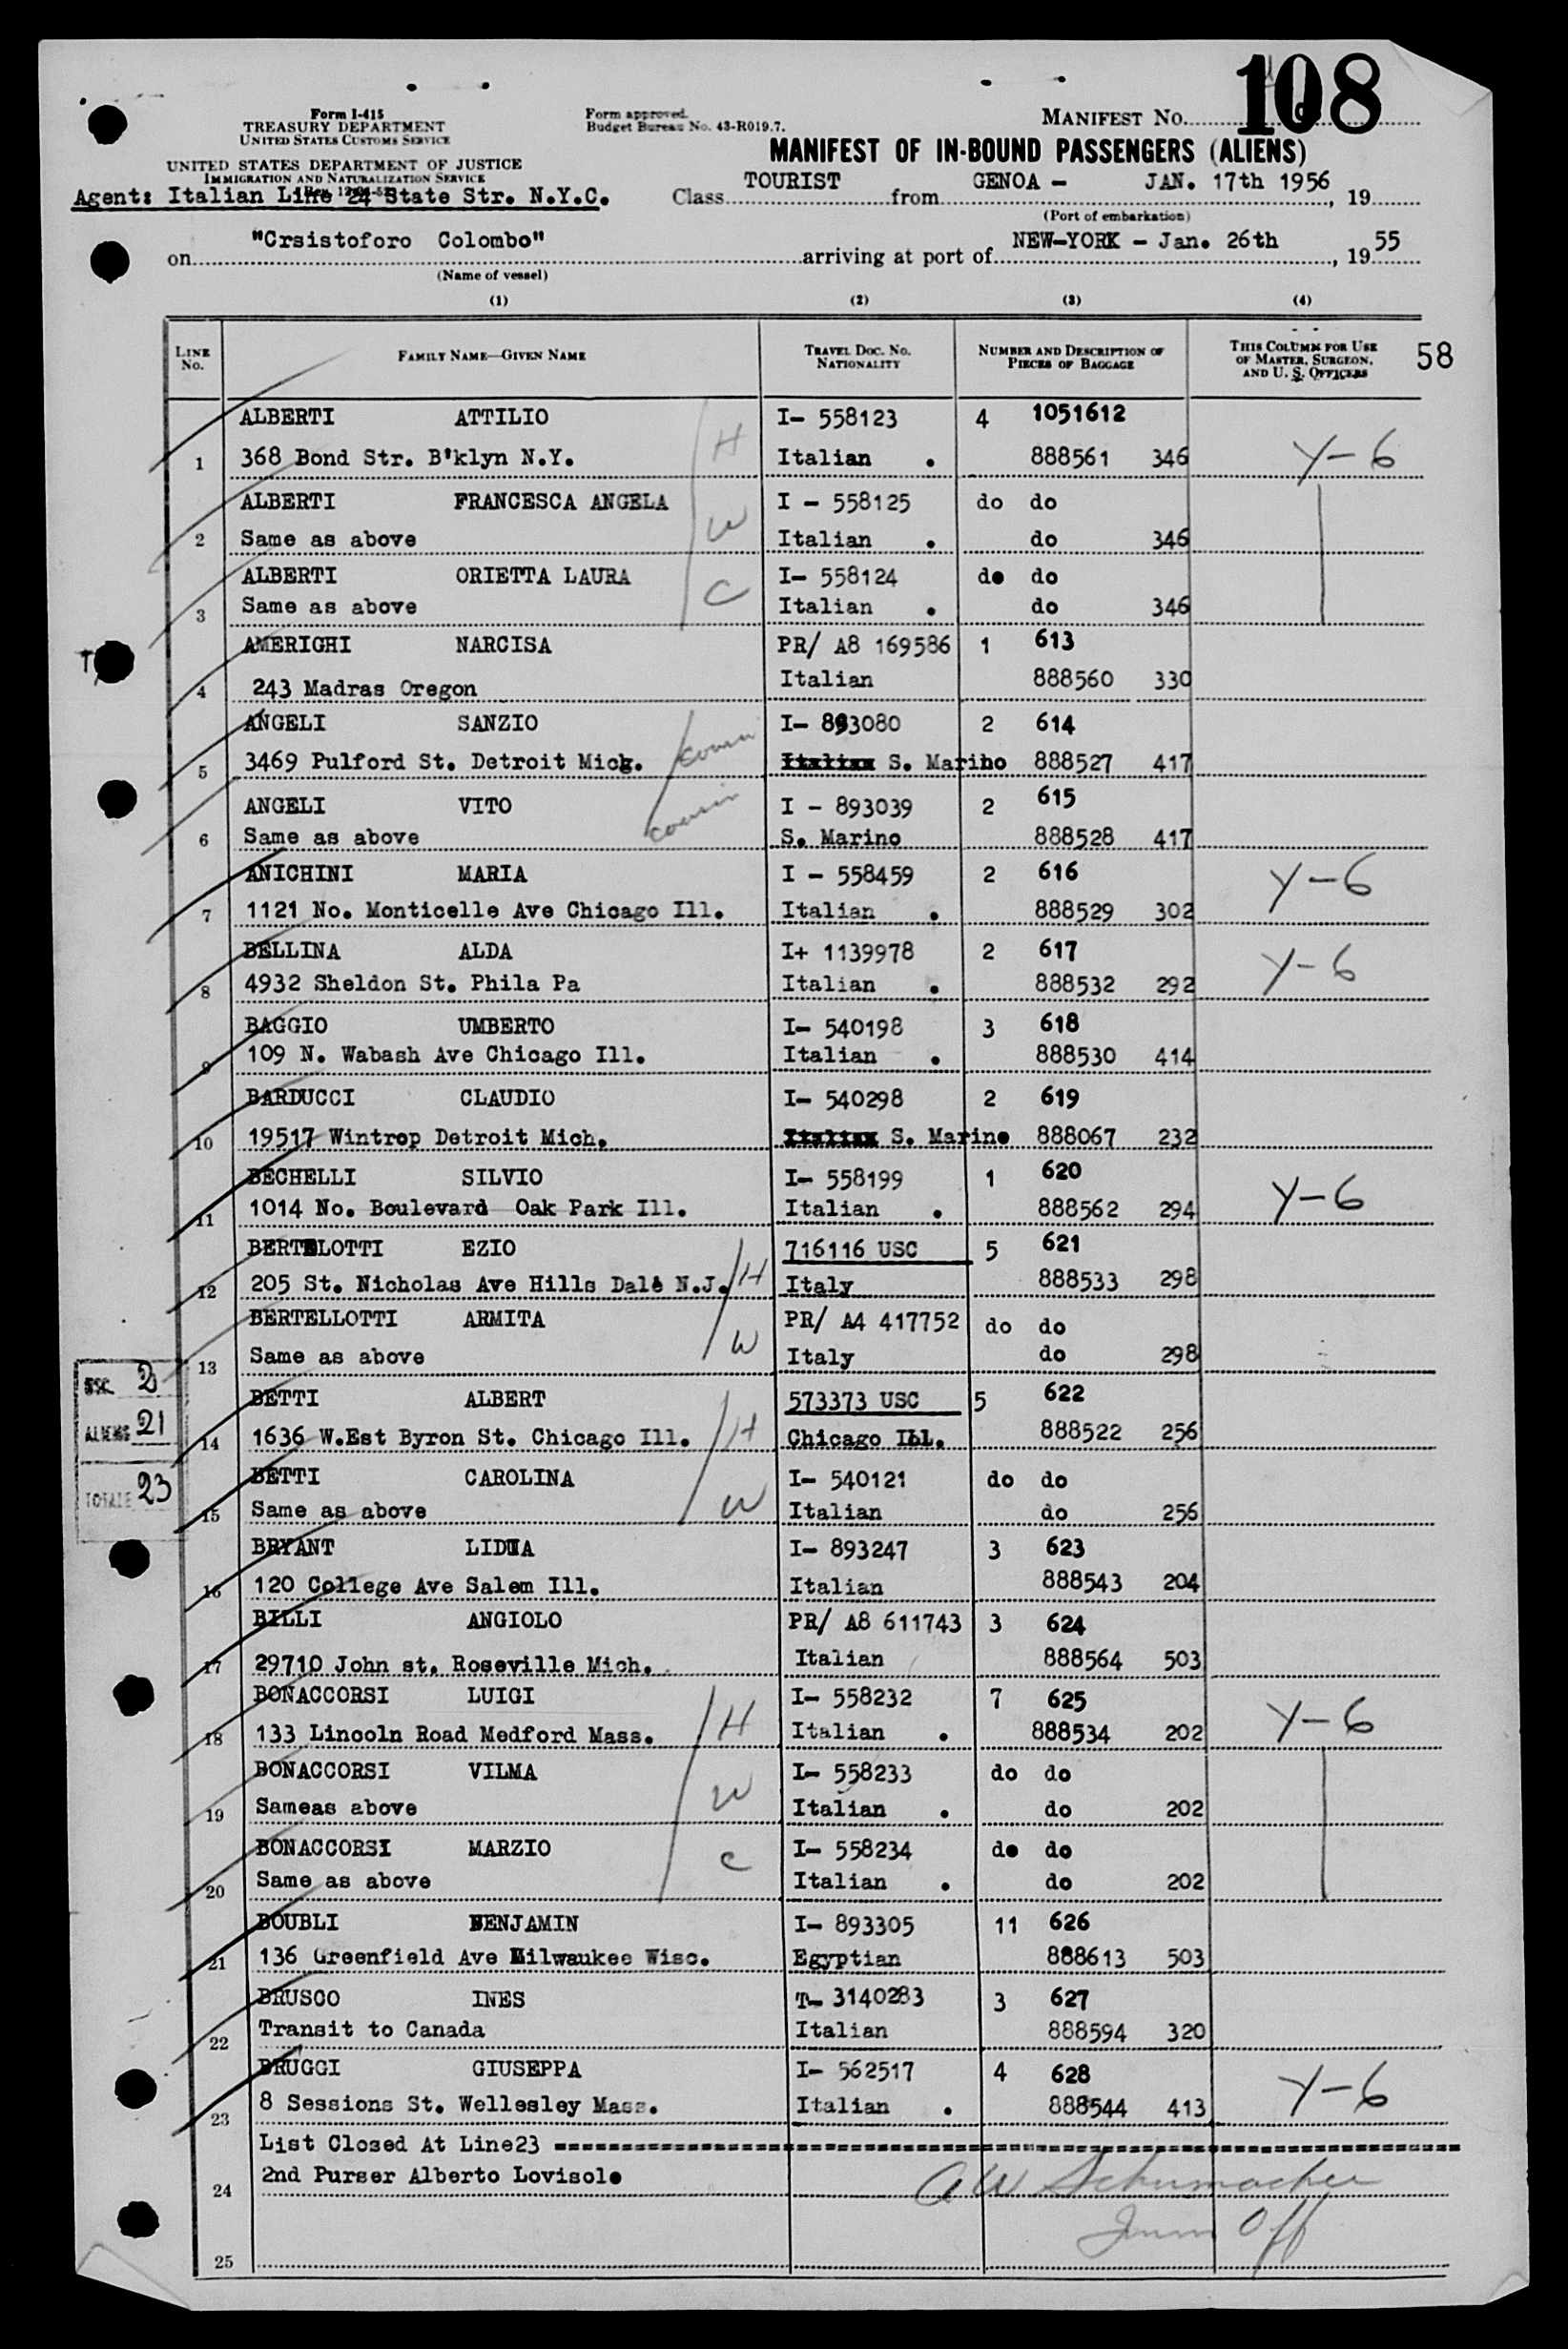 108
Form I-415
TREASURY DEPARTMENT
UNITED STATES CUSTOMS SERVICE
Form approved.
Budget Bureau No. 43-R019.7.
MANIFEST No.
MANIFEST OF IN-BOUND PASSENGERS (ALIENS)
UNITED STATES DEPARTMENT OF JUSTICE
IMMIGRATION AND NATURALIZATION SERVICE
Agent: Italian Line 24 State Str. N.Y.C.
Class TOURIST from GENOA - JAN. 17th 1956, 19
(Port of embarkation)
on "Crsistoforo Colombo" arriving at port of NEW-YORK - Jan. 26th, 19 55
(Name of vessel)
(1) (2) (3) (4)
LINE No. FAMILY NAME—GIVEN NAME TRAVEL DOC. No. NATIONALITY NUMBER AND DESCRIPTION OF PIECES OF BAGGAGE THIS COLUMN FOR USE OF MASTER, SURGEON, AND U. S. OFFICERS 58
ALBERTI ATTILIO I- 558123 4 1051612
1 368 Bond Str. B'klyn N.Y. H Italian . 888561 346 Y-6
ALBERTI FRANCESCA ANGELA I - 558125 do do
2 Same as above W Italian . do 346
ALBERTI ORIETTA LAURA I- 558124 do do
3 Same as above C Italian . do 346
AMERIGHI NARCISA PR/ A8 169586 1 613
4 243 Madras Oregon Italian 888560 330
ANGELI SANZIO I- 893080 2 614
5 3469 Pulford St. Detroit Mick. cousin Italian S. Marino 888527 417
ANGELI VITO I - 893039 2 615
6 Same as above cousin S. Marino 888528 417
ANICHINI MARIA I - 558459 2 616
7 1121 No. Monticelle Ave Chicago Ill. Italian . 888529 302 Y-6
BELLINA ALDA I+ 1139978 2 617
8 4932 Sheldon St. Phila Pa Italian . 888532 292 Y-6
BAGGIO UMBERTO I- 540198 3 618
9 109 N. Wabash Ave Chicago Ill. Italian . 888530 414
BARDUCCI CLAUDIO I- 540298 2 619
10 19517 Wintrop Detroit Mich. Italian S. Marino 888067 232
BECHELLI SILVIO I- 558199 1 620
11 1014 No. Boulevard Oak Park Ill. Italian . 888562 294 Y-6
BERTELOTTI EZIO 716116 USC 5 621
12 205 St. Nicholas Ave Hills Dale N.J. H Italy 888533 298
BERTELLOTTI ARMITA PR/ A4 417752 do do
13 Same as above W Italy do 298
USC 2
ALIENS 21
TOTALE 23
BETTI ALBERT 573373 USC 5 622
14 1636 W.Est Byron St. Chicago Ill. H Chicago Ill. 888522 256
BETTI CAROLINA I- 540121 do do
15 Same as above W Italian do 256
BRYANT LIDIA I- 893247 3 623
16 120 College Ave Salem Ill. Italian 888543 204
BILLI ANGIOLO PR/ A8 611743 3 624
17 29710 John st. Roseville Mich. Italian 888564 503
BONACCORSI LUIGI I- 558232 7 625
18 133 Lincoln Road Medford Mass. H Italian . 888534 202 Y-6
BONACCORSI VILMA I- 558233 do do
19 Sameas above W Italian . do 202
BONACCORSI MARZIO I- 558234 do do
20 Same as above C Italian . do 202
BOUBLI BENJAMIN I- 893305 11 626
21 136 Greenfield Ave Milwaukee Wisc. Egyptian 888613 503
BRUSCO INES T- 3140283 3 627
22 Transit to Canada Italian 888594 320
BRUGGI GIUSEPPA I- 562517 4 628
23 8 Sessions St. Wellesley Mass. Italian . 888544 413 Y-6
List Closed At Line23
24 2nd Purser Alberto Lovisolo AW Schumacher
Imm Off
25